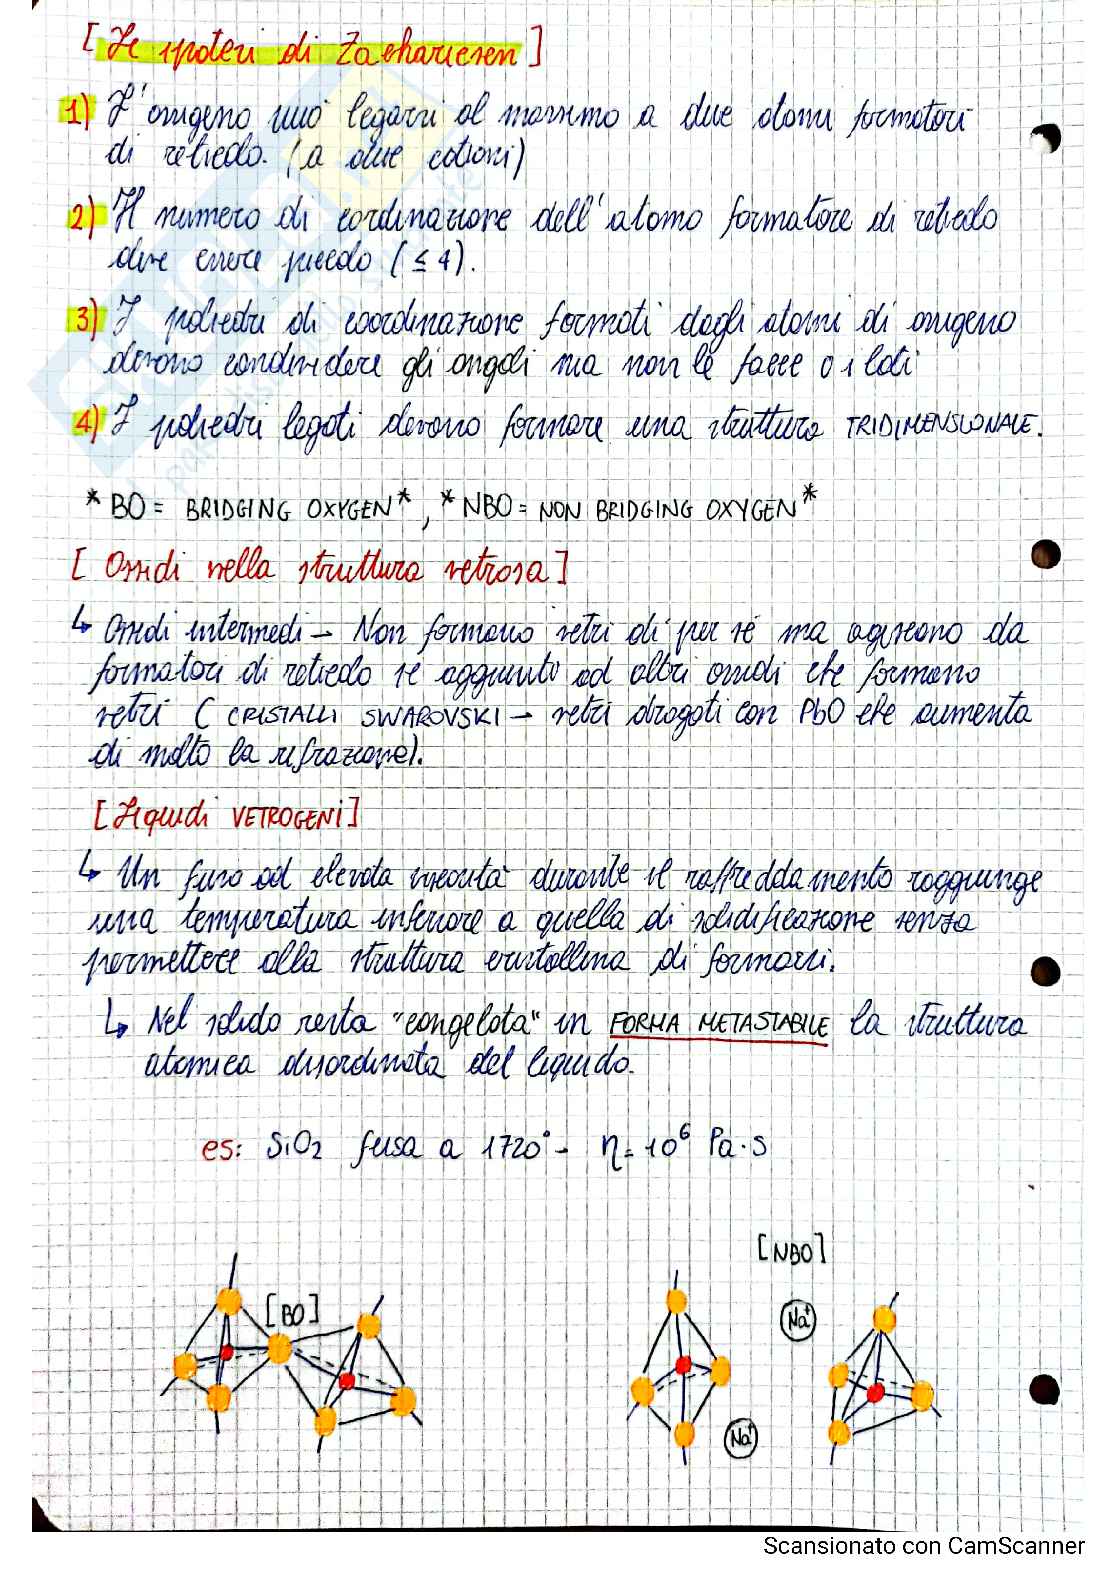 [Le ipotesi di Zachariesen]
1) L'ossigeno può legarsi al massimo a due atomi formatori
di reticolo. (a due cationi)
2) Il numero di cordinazione dell'atomo formatore di reticolo
deve essere piccolo (≤ 4).
3) I poliedri di coordinazione formati dagli atomi di ossigeno
devono condividere gli angoli ma non le facce o i lati
4) I poliedri legati devono formare una struttura TRIDIMENSIONALE.
*BO = BRIDGING OXYGEN*, *NBO = NON BRIDGING OXYGEN*
[Ossidi nella struttura vetrosa]
↳ Ossidi intermedi - Non formano vetri di per sé ma agiscono da
formatori di reticolo se aggiunto ad altri ossidi che formano
vetri (CRISTALLI SWAROVSKI - vetri drogati con PbO che aumenta
di molto la rifrazione).
[Liquidi VETROGENI]
↳ Un fuso ad elevata viscosità durante il raffreddamento raggiunge
una temperatura inferiore a quella di solidificazione senza
permettere alla struttura cristallina di formarsi.
↳ Nel solido resta "congelata" in FORMA METASTABILE la struttura
atomica disordinata del liquido.
es: SiO2 fusa a 1720° - η = 10⁶ Pa·s
[NBO]
[BO]
Na⁺
Na⁺
Scansionato con CamScanner